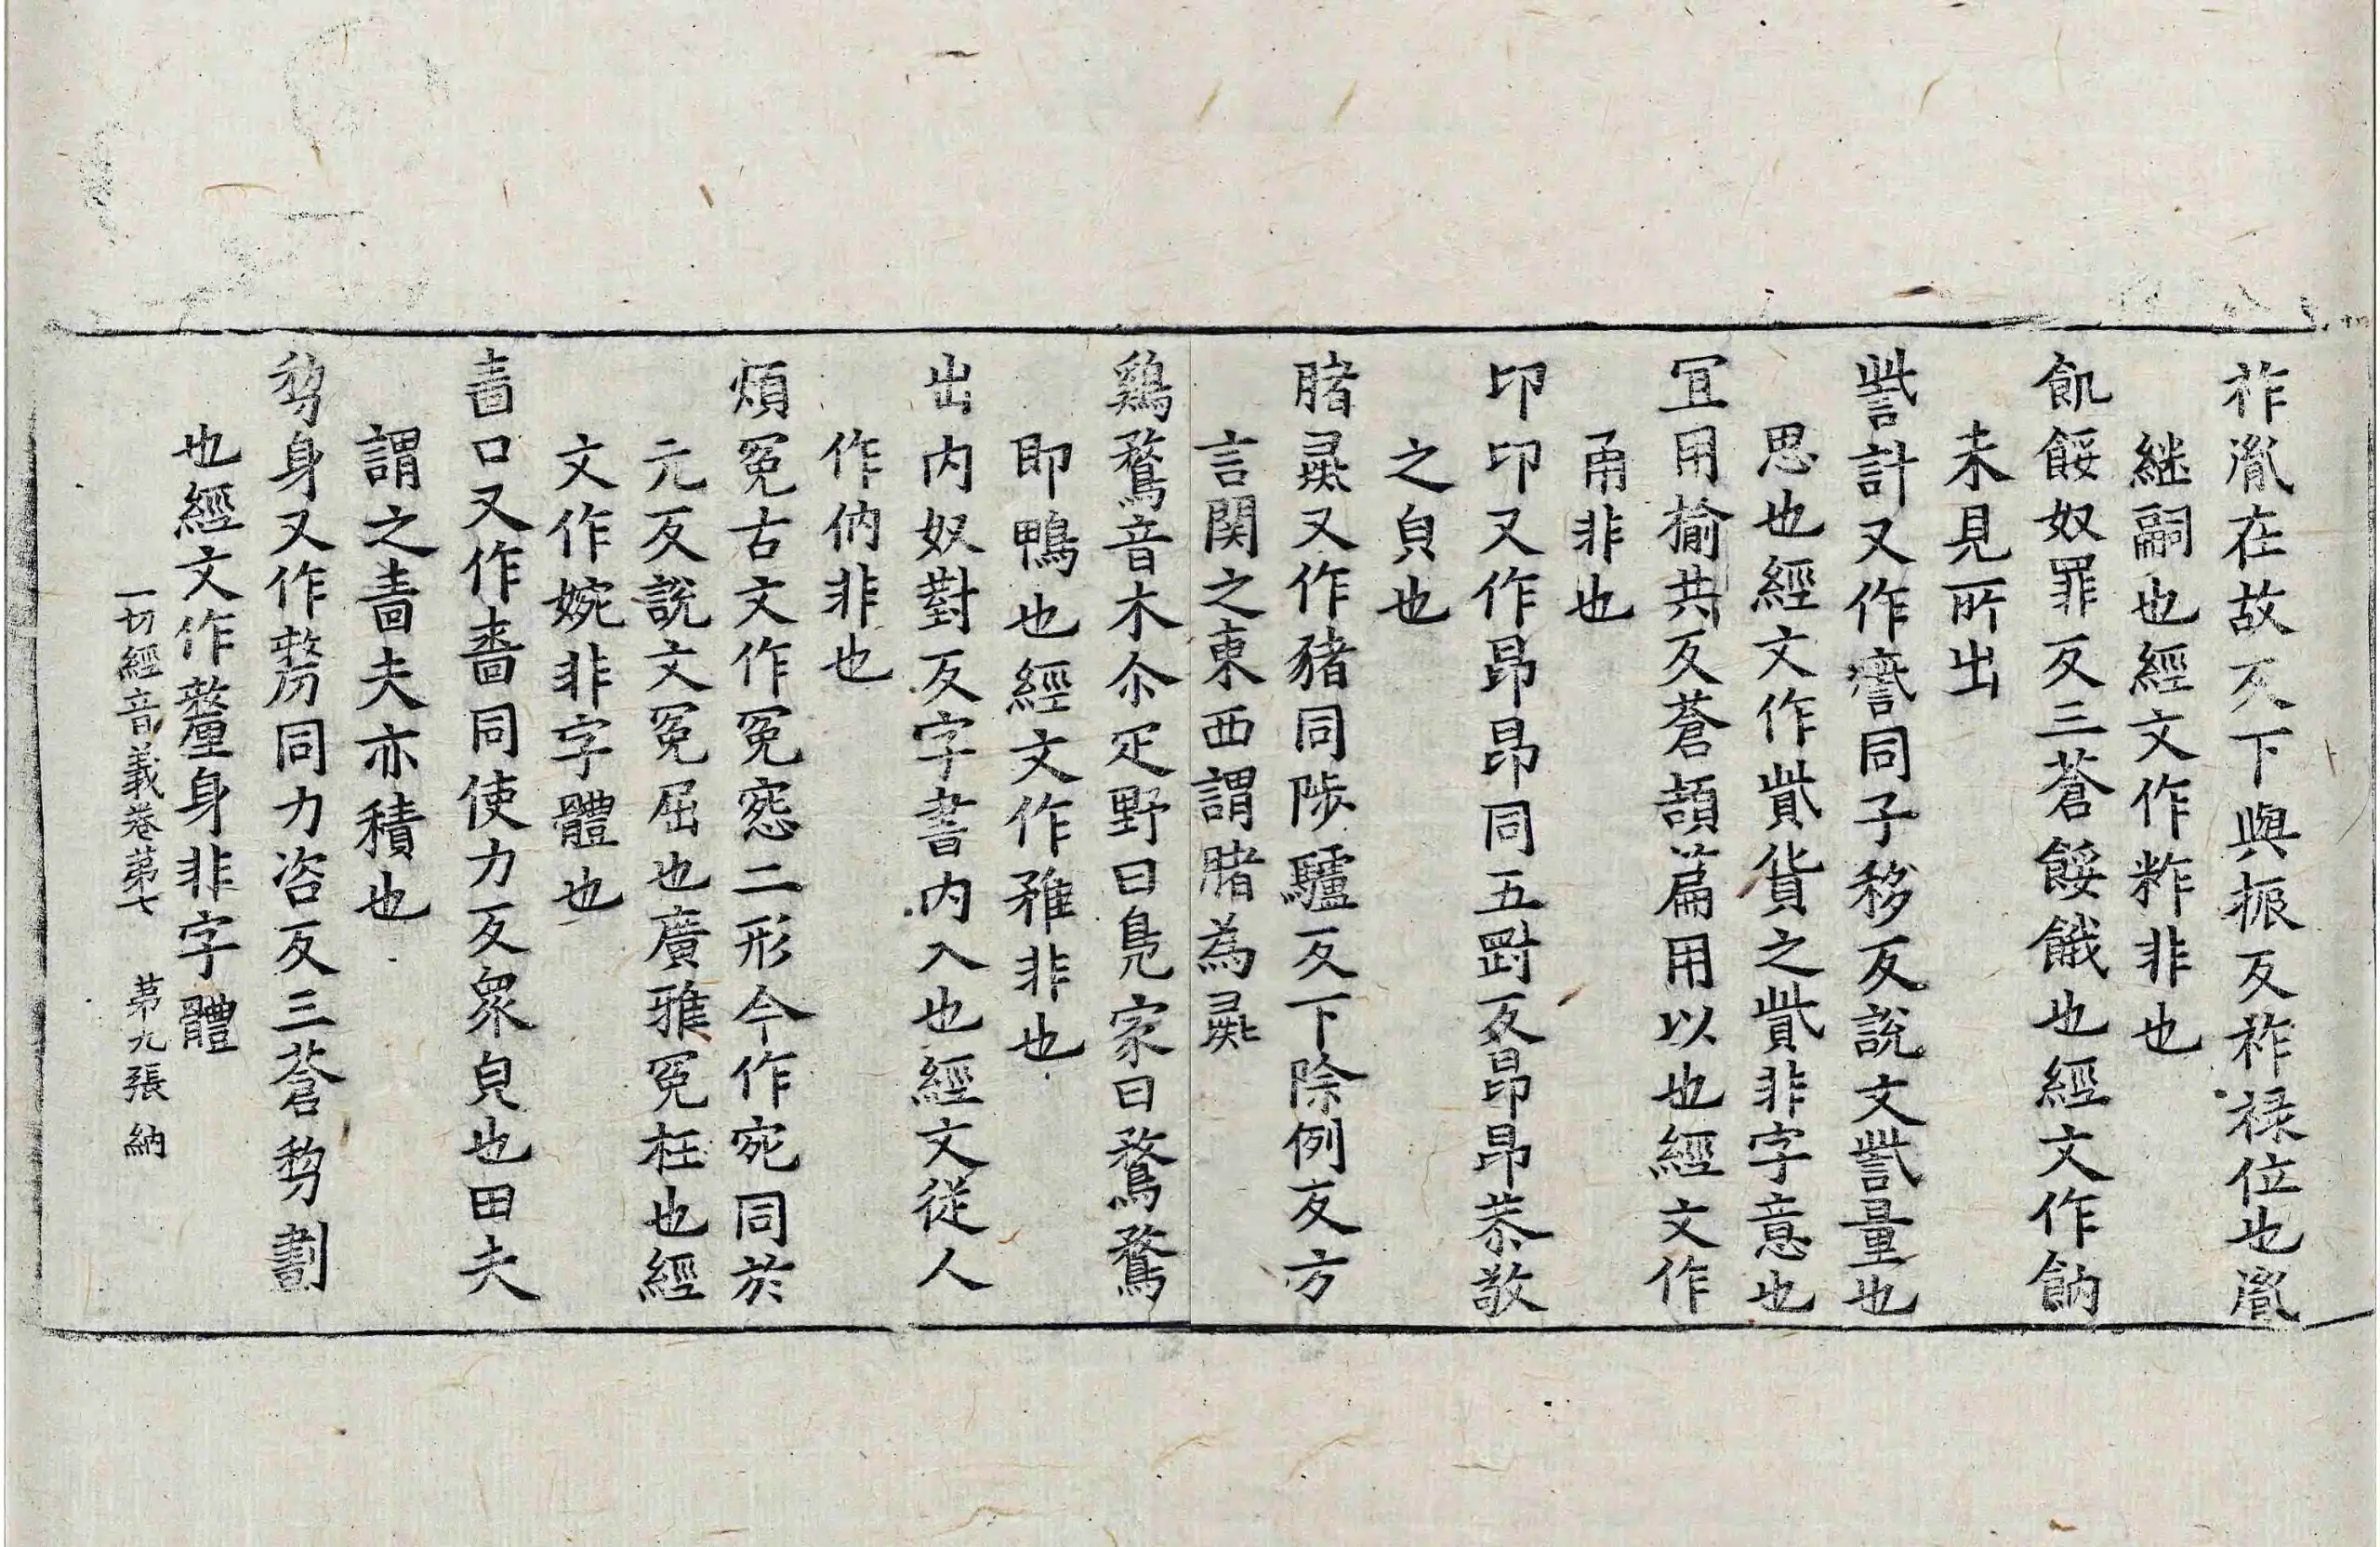 祚胤在故反下與振反祚祿位也胤
継嗣也經文作粼非也
飢餒奴罪反三蒼餒餓也經文作䬧
未見所出
訾計又作㱔同子移反說文訾量也
思也經文作貲貨之貲非字意也
冝用揄共反蒼頡篇用以也經文作
甬非也
卬卬又作昂昂同五對反昂昂恭敬
之皃也
䐗彘又作豬同陟驢反下除例反方
言関之東西謂䐗為彘
鷄鶩音木尒疋野曰鳧家曰鶩鶩
即鴨也經文作雅非也
出内奴對反字書内入也經文從人
作㐻非也
煩寃古文作寃㤪二形今作宛同於
元反說文寃屈也廣雅寃枉也經
文作婉非字體也
嗇口又作啬同使力反衆皃也田夫
謂之嗇夫亦積也
剺身又作㓯同力咨反三蒼剺劃
也經文作釐身非字體
一切經音義卷第七 第九張 納